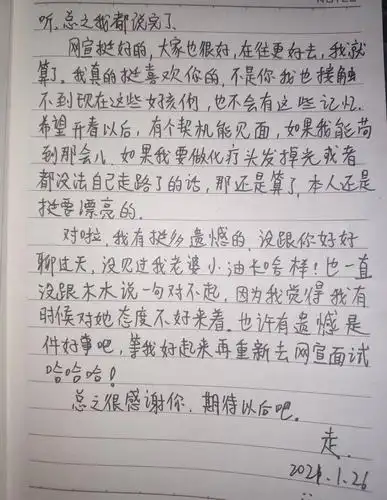 听,总之我都说完了.
网宣挺好的,大家也很好,在往更好去,我就
算了。我真的挺喜欢你的,不是你我也接触
不到现在这些好孩们,也不会有这些记忆.
希望开春以后,有个契机能见面,如果我能苟
到那会儿.如果我要做化疗头发掉光或者
都没法自己走路了的话,那还是算了.本人还是
挺要漂亮的.
对啦,我有挺多遗憾的,没跟你好好
聊过天,没见过我老婆小油卡啥样!也一直
没跟木木说一句对不起,因为我觉得我有
时候对她态度不好来着。也许有遗憾是
件好事吧,等我好起来再重新去网宣面试
哈哈哈!
总之很感谢你.期待以后吧.
走.
2024.1.26